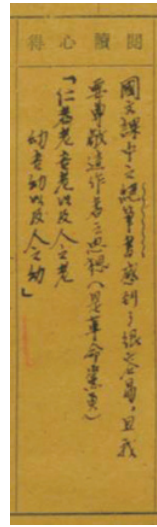 閱讀心得
國文課中之絕筆書感到了很不容易，且我
要尊敬這作者之思想（是革命黨員）
「仁為老吾老以及人之老
幼吾幼以及人之幼」